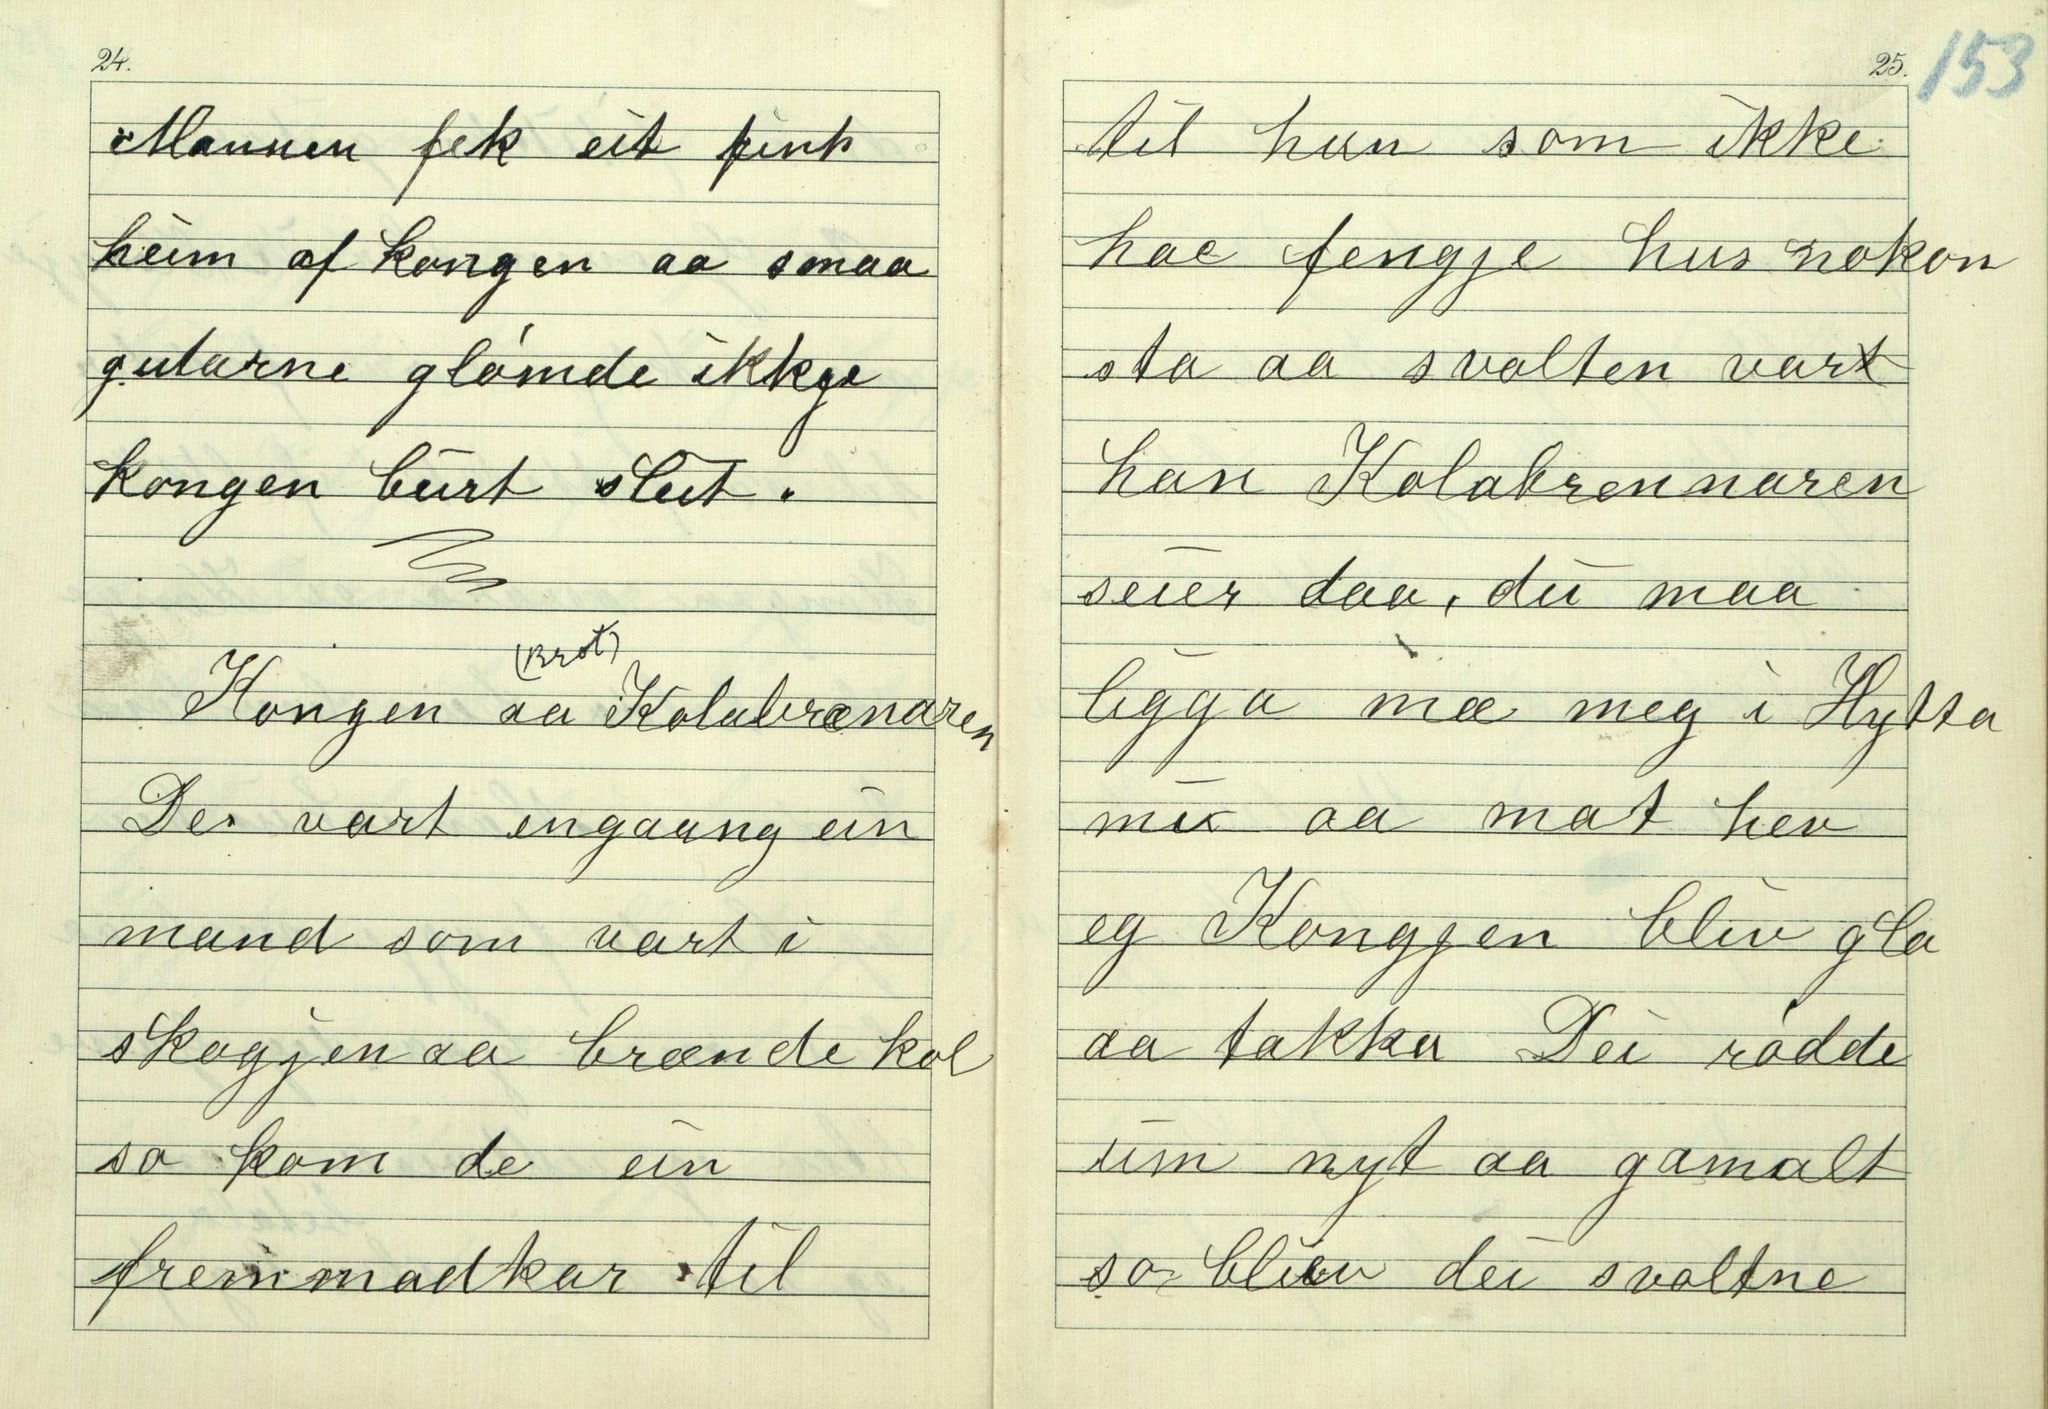 24.
Mannen fek eit fint
heim af kongen aa smaa
gutarne glømde ikkje
kongen burt slut.
(Brot)
Kongen aa Kolabrænaren
De vart engaang ein
mand som vart i
skogjen aa brænde kol
so kom de ein
fremmadkar til
25.
153
til han som ikke
hae fengje hus nokon
sta aa svolten vart
han Kolabrennaren
seier daa, du maa
ligga mæ meg i Hytta
mi aa mat hev
eg Kongjen bliv gla
aa takka Dei rødde
um nyt aa gamalt
so bliv dei svoltne